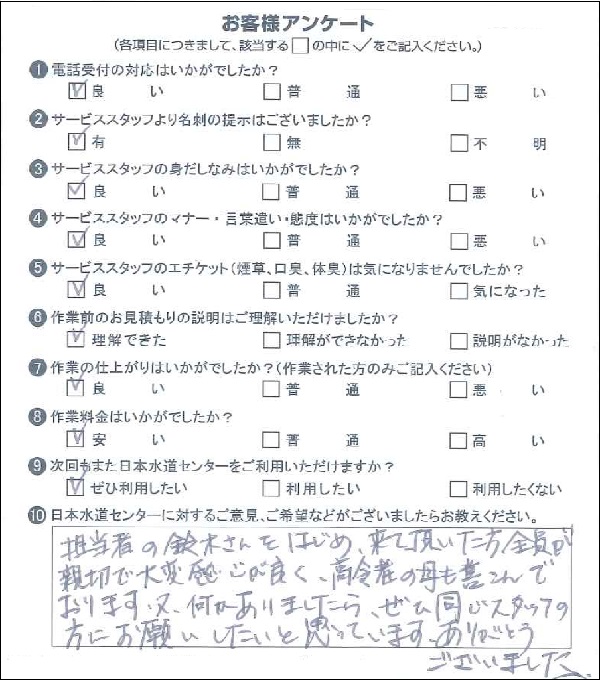 お客様アンケート
(各項目につきまして、該当する□の中に✓をご記入ください。)
❶ 電話受付の対応はいかがでしたか?
☑ 良い □ 普通 □ 悪い
❷ サービススタッフより名刺の提示はございましたか?
☑ 有 □ 無 □ 不明
❸ サービススタッフの身だしなみはいかがでしたか?
☑ 良い □ 普通 □ 悪い
❹ サービススタッフのマナー・言葉遣い・態度はいかがでしたか?
☑ 良い □ 普通 □ 悪い
❺ サービススタッフのエチケット(煙草、口臭、体臭)は気になりませんでしたか?
☑ 良い □ 普通 □ 気になった
❻ 作業前のお見積もりの説明はご理解いただけましたか?
☑ 理解できた □ 理解ができなかった □ 説明がなかった
❼ 作業の仕上がりはいかがでしたか?(作業された方のみご記入ください)
☑ 良い □ 普通 □ 悪い
❽ 作業料金はいかがでしたか?
☑ 安い □ 普通 □ 高い
❾ 次回もまた日本水道センターをご利用いただけますか?
☑ ぜひ利用したい □ 利用したい □ 利用したくない
❿ 日本水道センターに対するご意見、ご希望などがございましたらお教えください。
担当者の鈴木さんをはじめ、来て頂いた方全員が
親切で大変感じが良く、高令者の母も喜こんで
おります。又、何かありましたら、ぜひ同じスタッフの
方にお願いしたいと思っています。ありがとう
ございました。